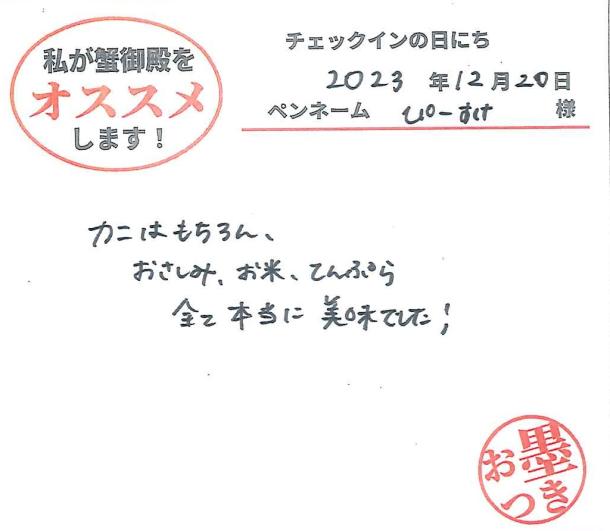 私が蟹御殿を
オススメ
します！
チェックインの日にち
2023 年 12 月 20 日
ペンネーム ぴーすけ 様
カニはもちろん、
おさしみ、お米、てんぷら
全て本当に美味でした！
お墨
つき